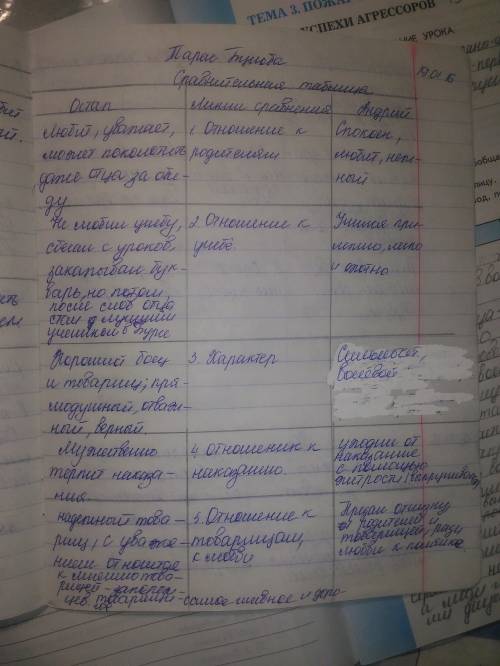 ТЕМА 3. ПОЖА
УСПЕХИ АГРЕССОРОВ
ЕНИЕ УРОКА
Тарас Бульба
Сравнительная таблица
19.01.16
Остап
Линии сравнения
Андрий
Любит, уважает,
может поколотить
даже отца за оби-
ду
1. Отношение к
родителям
Спокоен,
любит, неж-
ный
Не любил учебу,
сбегал с уроков,
закапывал бук-
варь, но потом,
после слов отца
стал лучшим
учеником в бурсе
2. Отношение к
учебе.
Учился при-
лежно, легко
и охотно
Хороший боец
и товарищ; пря-
модушный, отваж-
ный, верный.
3. Характер
Волевой
Мужественно
терпит наказа-
ния.
4. отношении к
наказанию.
уходил от
наказание
с помощью
хитрости
надежный това-
рищ, с уваже-
нием относится
к мнению това-
рищей - запорож-
цев, товарищес-
5. Отношение к
товарищам,
к любви
Предал отчизну
родителей и
товарищей, ради
любви к полячке.
самое главное и доро-